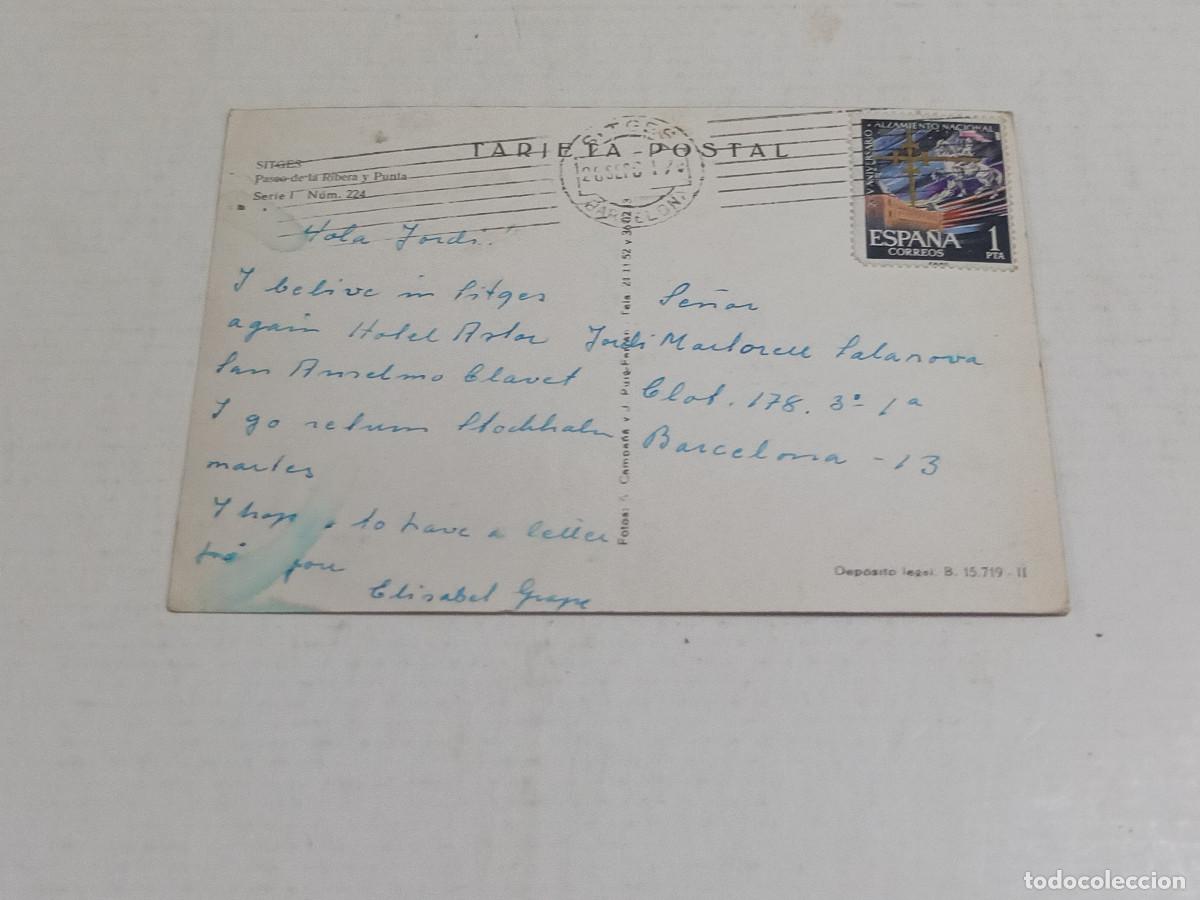 TARJETA POSTAL
SITGES
Paseo de la Ribera y Punta
Serie I Núm. 224
SITGES
BARCELONA
XXV ANIVERSARIO ALZAMIENTO NACIONAL
ESPAÑA
CORREOS
1
PTA
Hola Jordi!
I belive in Sitges
again Hotel Astor
San Anselmo Clavet
I go return Stockholm
martes
I hope to have a letter
you
Elisabet
Señor
Jordi Martorell Salanova
Clot. 178. 3º 1ª
Barcelona - 13
Fotos: A. Campañá y J. Puig-Ferrán
Depósito legal. B. 15.719 - II
todocoleccion